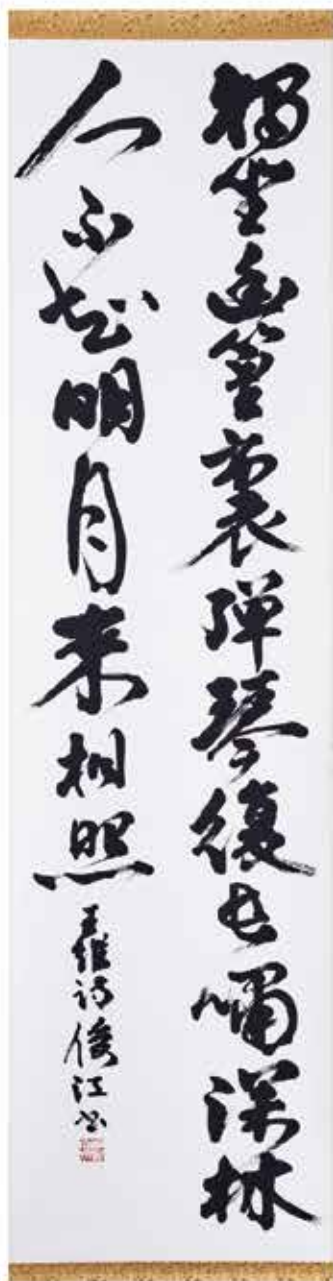 獨坐幽篁裏弾琴復長嘯深林
人不知明月来相照
王維詩俊江書